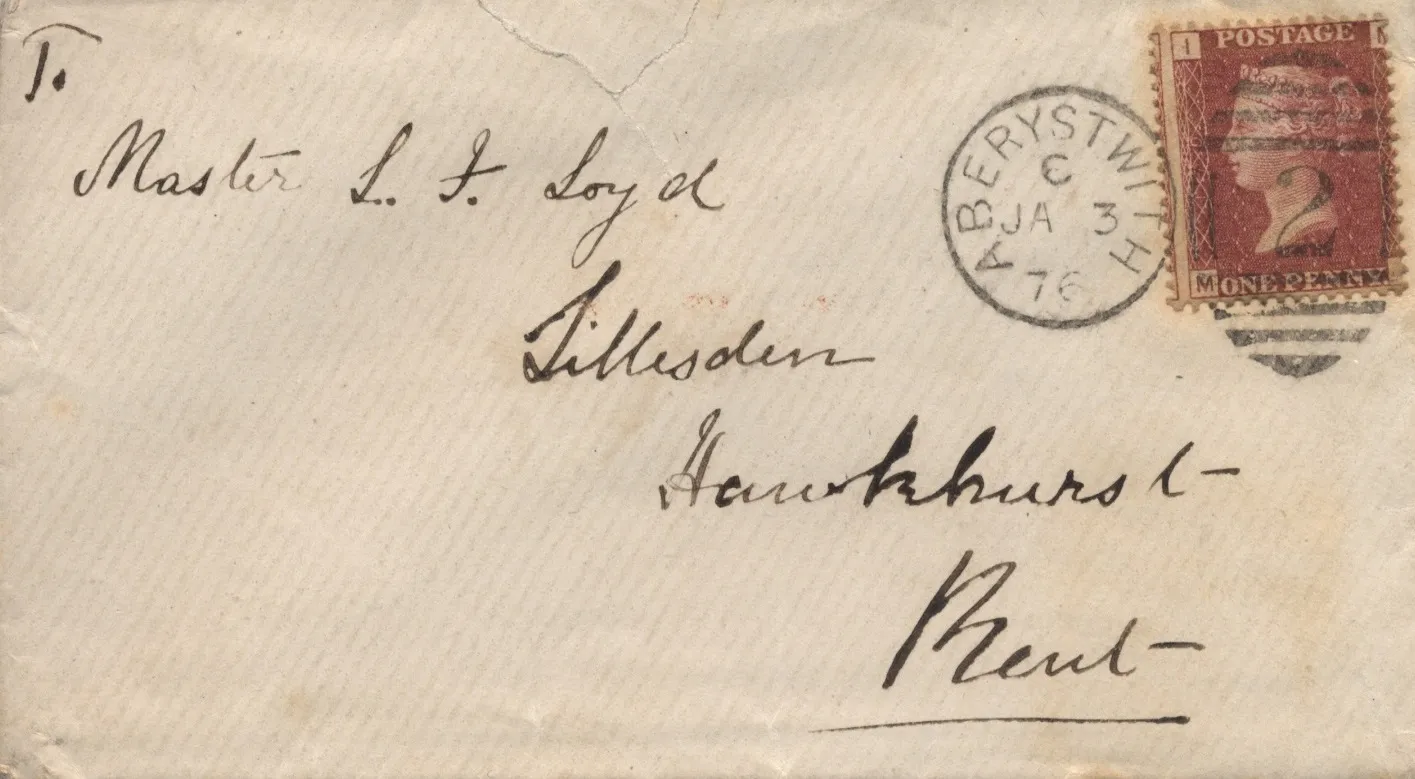 T.
Master L. F. Loyd
Tillesden
Hawkhurst
Kent
ABERYSTWITH
C
JA 3
76
I
POSTAGE
2
M ONE PENNY